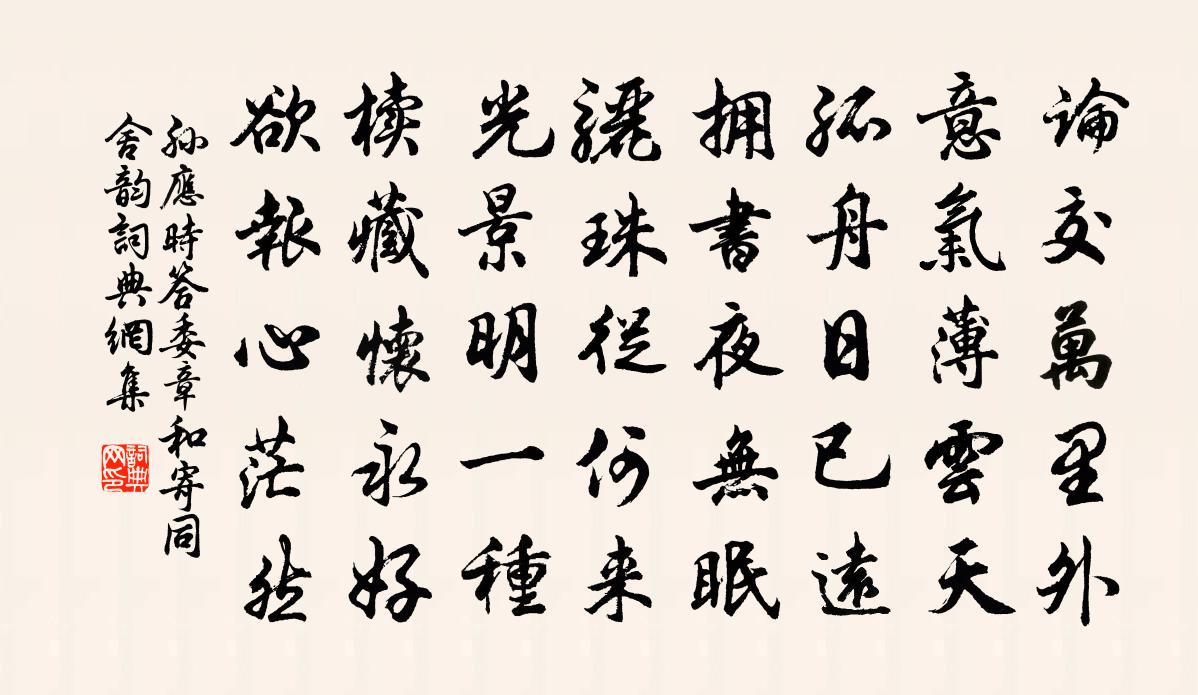 論交萬里外
意氣薄雲天
孤舟日已遠
擁書夜無眠
驪珠從何来
光景明一種
櫝藏懷永好
欲報心茫然
孫應時答委章和寄同
舍韵詞典網集
詞典网印